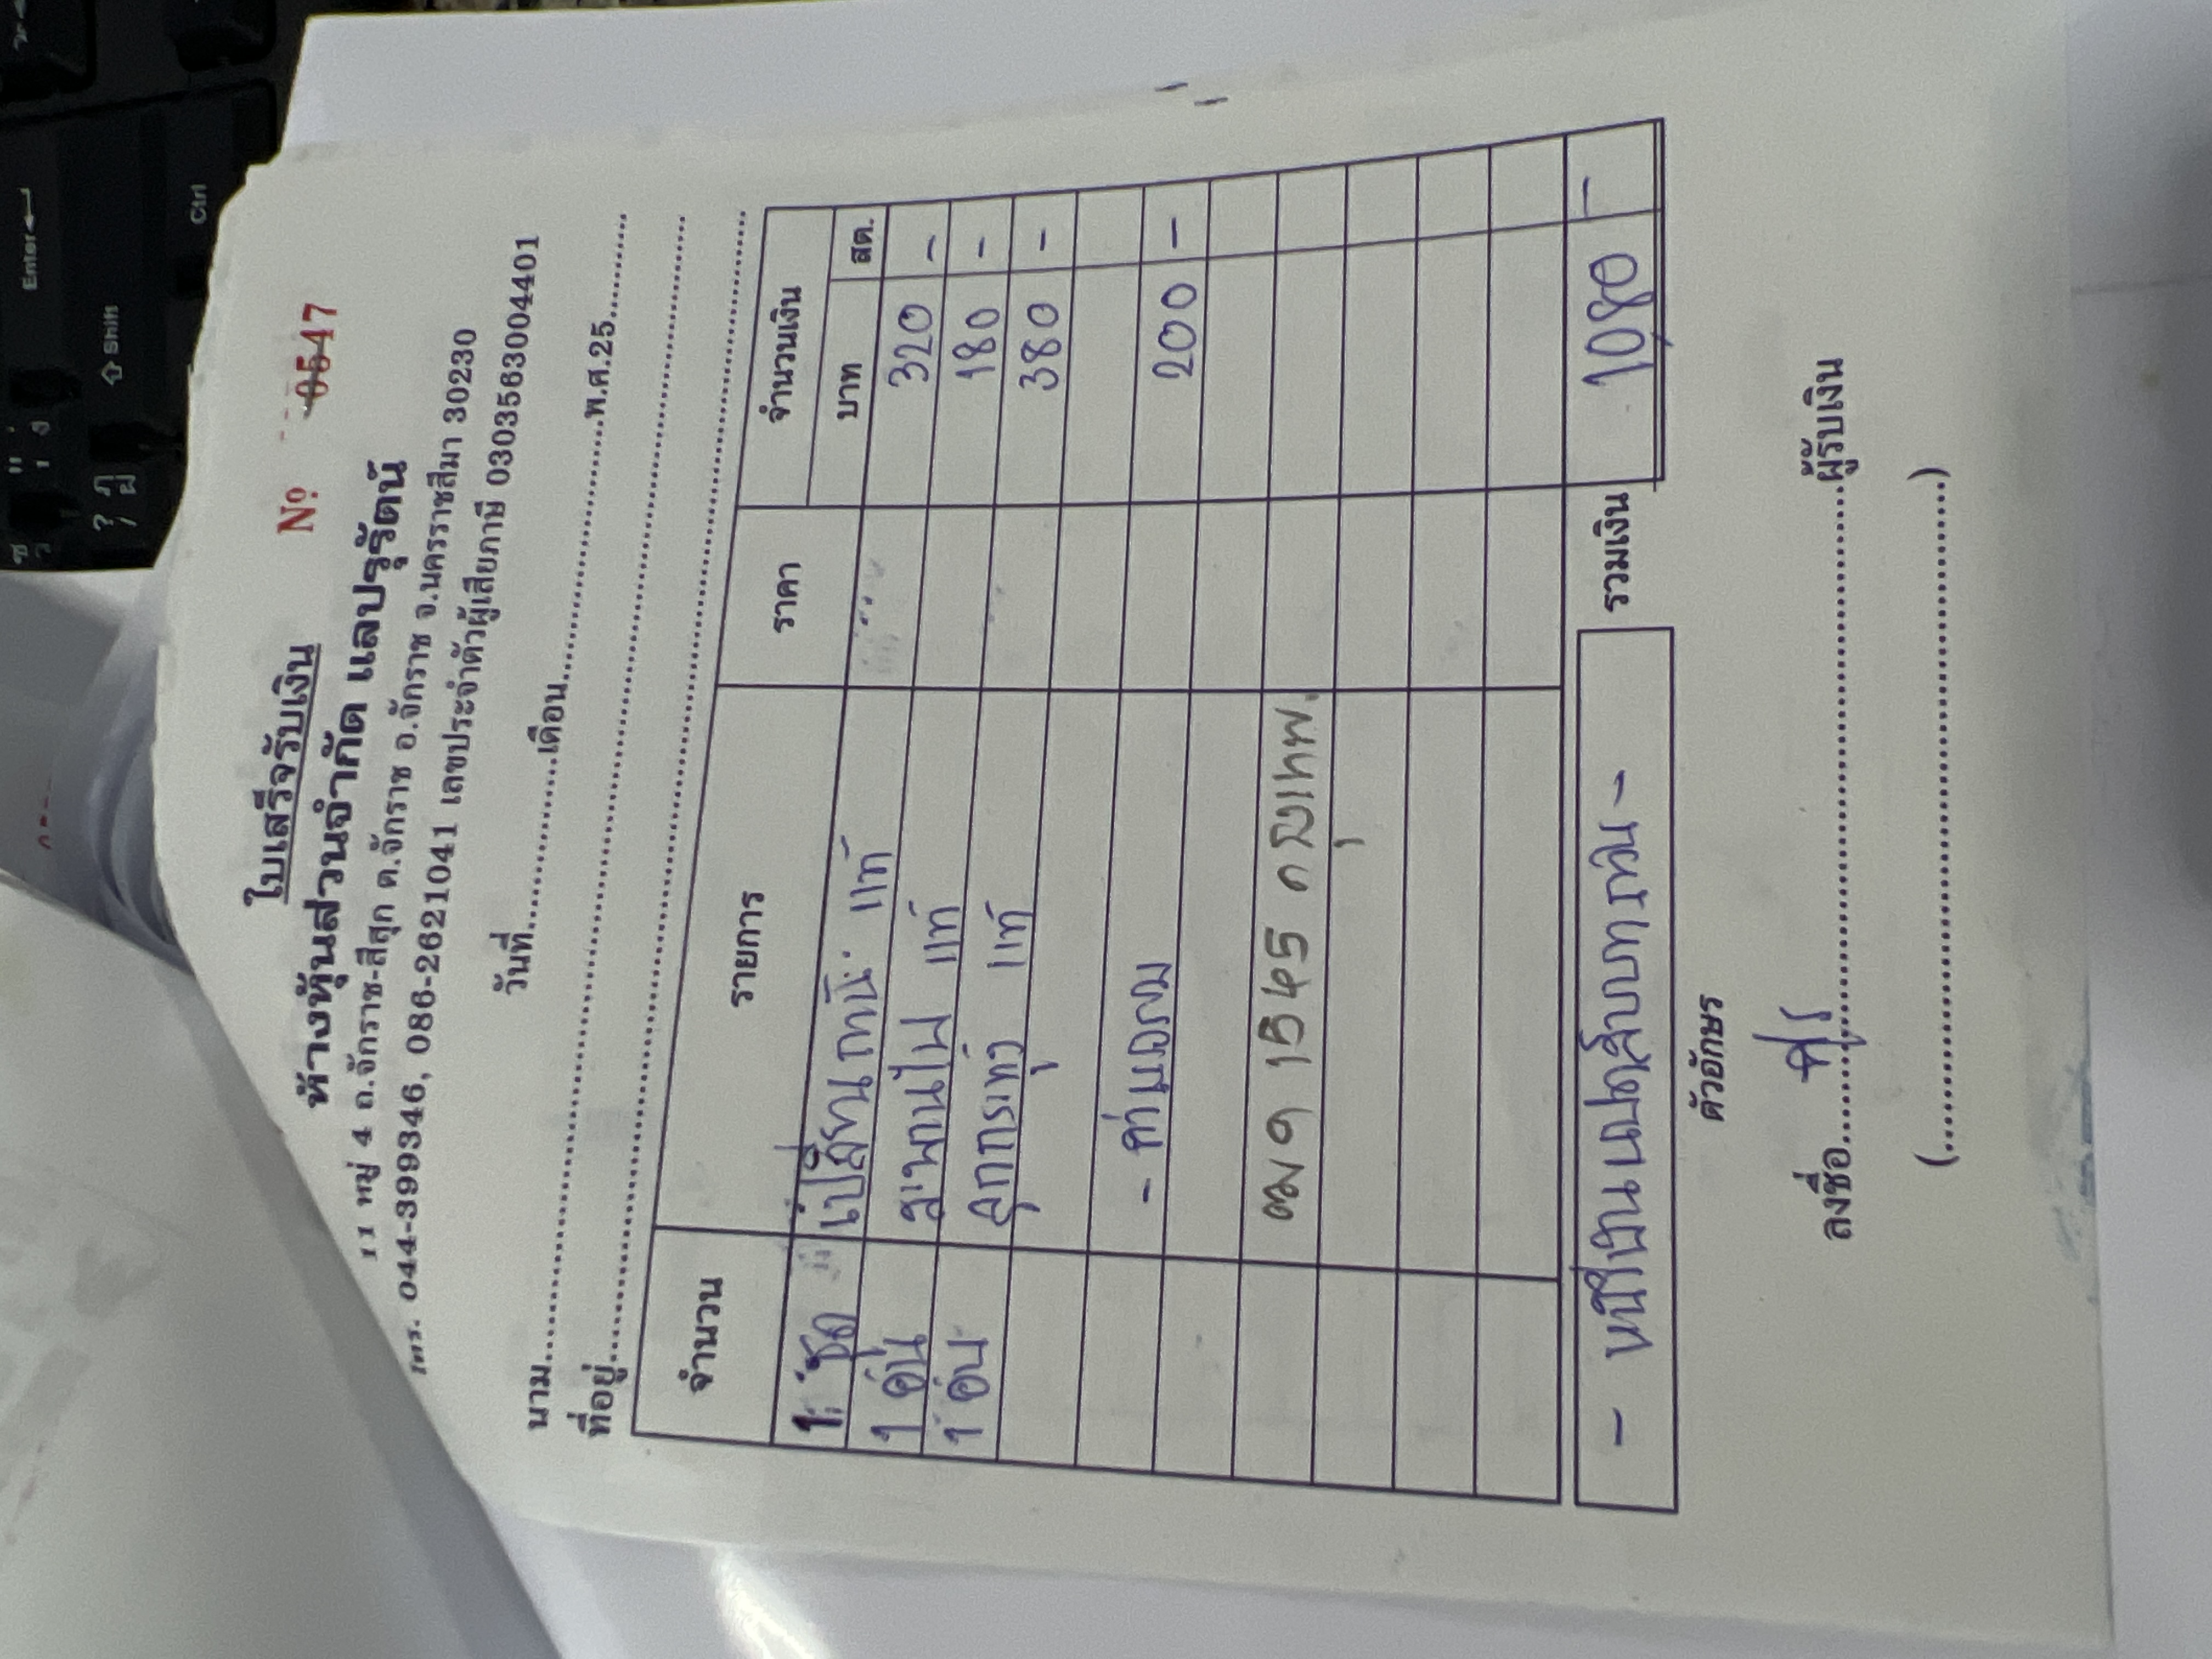 ใบเสร็จรับเงิน
№ 0547
ห้างหุ้นส่วนจำกัด แลปรุรัตน์
11 หมู่ 4 ถ.จักราช-สีสุก ต.จักราช อ.จักราช จ.นครราชสีมา 30230
โทร. 044-399346, 086-2621041 เลขประจำตัวผู้เสียภาษี 0303563004401
วันที่............เดือน............พ.ศ.25........
นาม............
ที่อยู่............
จำนวน รายการ ราคา จำนวนเงิน
บาท สต.
1 ชุด เปลี่ยน แท้ 320 -
1 อัน แท้ 180 -
1 อัน ลูกกระทุ้ง แท้ 380 -
- ค่าแรง 200 -
1545 กรุงเทพ.
- หนึ่งพันแปดสิบบาทถ้วน - รวมเงิน 1080 -
ตัวอักษร
ลงชื่อ............ผู้รับเงิน
(............)
Enter
Shift
Ctrl